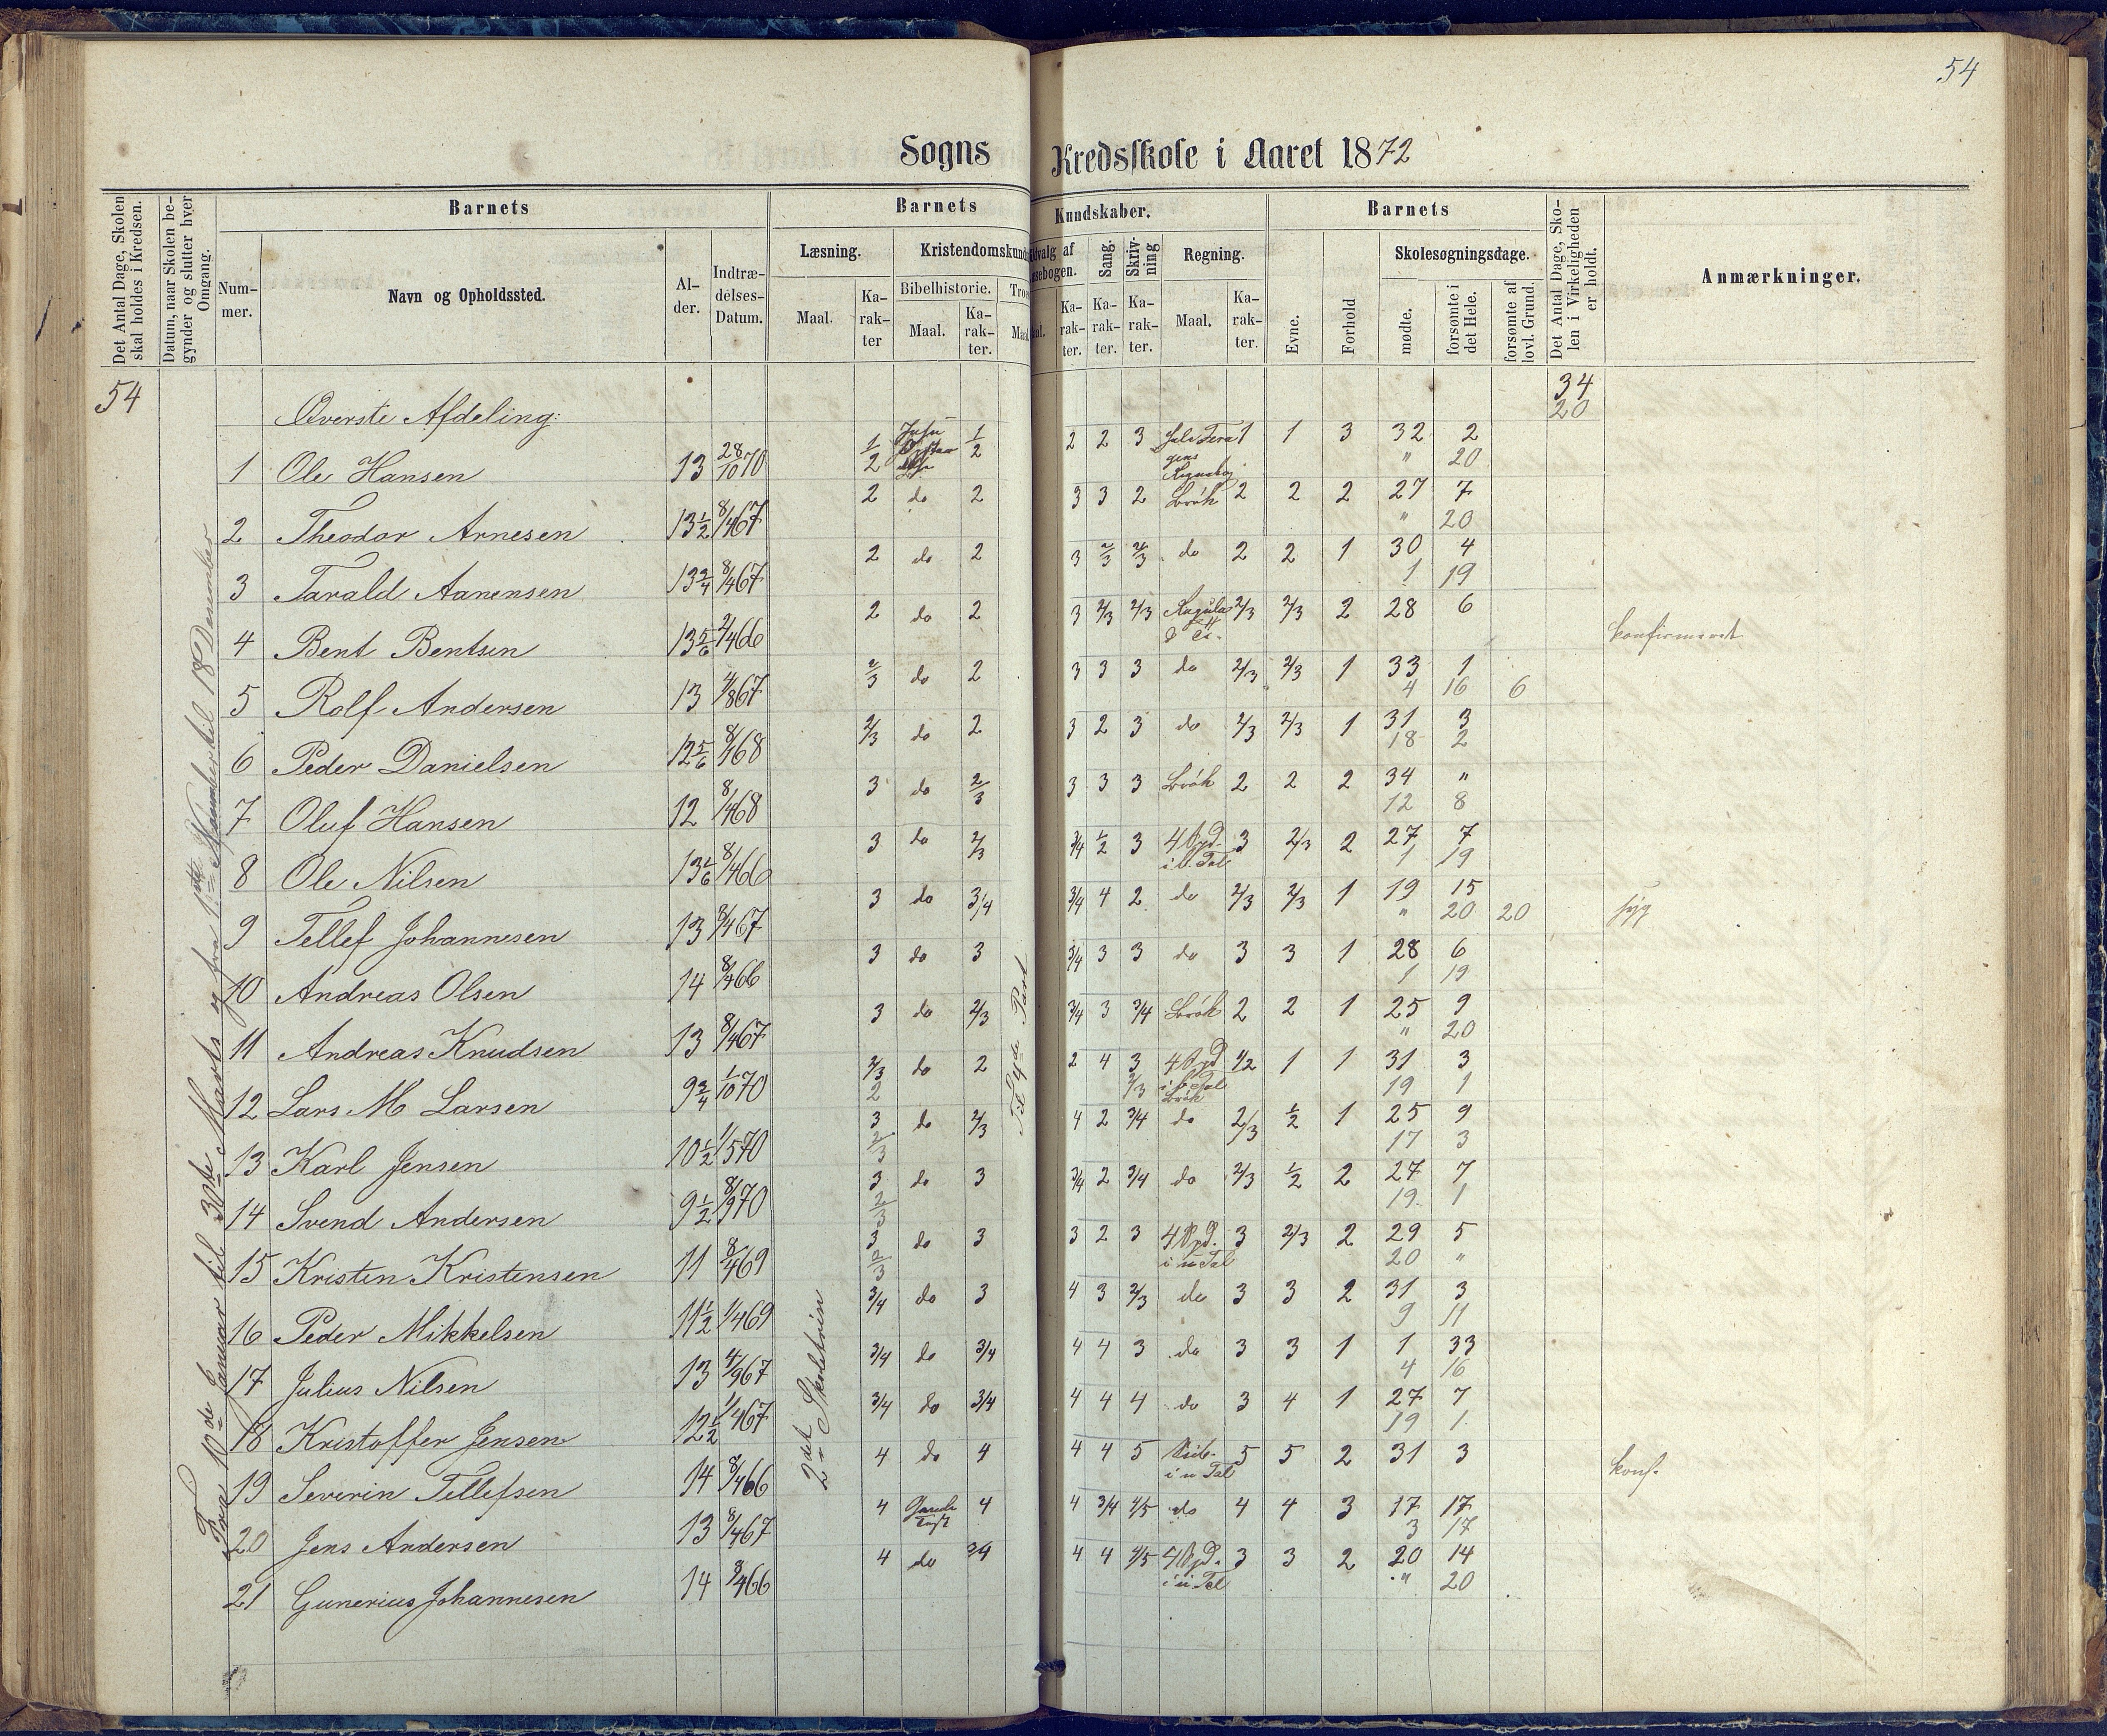 54
Sogns Kredsskole i Aaret 1872
Det Antal Dage, Skolen skal holdes i Kredsen.
Datum, naar Skolen begynder og slutter hver Omgang.
Barnets
Num-
mer.
Navn og Opholdssted.
Al-
der.
Indtræ-
delses-
Datum.
Barnets
Kundskaber.
Læsning.
Maal.
Ka-
rak-
ter
Bibelhistorie.
Maal.
Ka-
rak-
ter.
Ka-
rak-
ter.
Sang.
Ka-
rak-
ter.
Skriv-
ning
Ka-
rak-
ter.
Regning.
Maal.
Ka-
rak-
ter.
Barnets
Evne.
Forhold
Skolesøgningsdage.
mødte.
forsømte i det Hele.
forsømte af lovl. Grund.
Det Antal Dage, Skolen i Virkeligheden er holdt.
Anmærkninger.
54
Fra 10de Januar til 30te Marts og fra 1ste November til 18 December
2det Skoletrin
Til 4de Part
34
20
Øverste Afdeling:
1 Ole Hansen 13 28/10 70 1/2 1/2 2 2 3 1 1 3 32 2
" 20
2 Theodor Arnesen 13 1/2 8/4 67 2 do 2 3 3 2 Brök 2 2 2 27 7
" 20
3 Tarald Aanensen 13 3/4 8/4 67 2 do 2 3 2/3 2/3 do 2 2 1 30 4
1 19
4 Bent Bentsen 13 5/6 2/4 66 2 do 2 3 2/3 2/3 2/3 2/3 2 28 6 konfirmeret
5 Rolf Andersen 13 4/8 67 2/3 do 2 3 3 3 do 2/3 2/3 1 33 1
4 16 6
6 Peder Danielsen 12 5/6 8/1 68 2/3 do 2 3 2 3 do 2/3 2/3 1 31 3
18 2
7 Oluf Hansen 12 8/4 68 3 do 2/3 3 3 3 Brök 2 2 2 34 "
12 8
8 Ole Nilsen 13 1/6 8/4 66 3 do 2/3 3/4 1/2 3 4 Opd. 3 2/3 2 27 7
1 19
9 Tellef Johannesen 13 8/4 67 3 do 3/4 3/4 4 2 do 2/3 2/3 1 19 15
" 20 20 syg
10 Andreas Olsen 14 8/4 66 3 do 3 3/4 3 3 do 3 3 1 28 6
1 19
11 Andreas Knudsen 13 8/4 67 3 do 2/3 3/4 3 3/4 Brök 2 2 1 25 9
" 20
12 Lars M Larsen 9 3/4 1/10 70 2/3 do 2 2 4 3 4 Opd 1/2 1 1 31 3
2 2/3 Brök 19 1
13 Karl Jensen 10 1/2 1/5 70 3 do 2/3 4 2 3/4 do 2/3 1/2 1 25 9
2/3 17 3
14 Svend Andersen 9 1/2 8/9 70 3 do 3 3/4 2 3/4 do 2/3 1/2 2 27 7
2/3 19 1
15 Kristen Kristensen 11 8/4 69 3 do 3 3 2 3 4 Opd. i u Tal 3 2/3 2 29 5
2/3 20 "
16 Peder Mikkelsen 11 1/2 1/4 69 3/4 do 3 4 3 2/3 do 3 3 2 31 3
9 11
17 Julius Nilsen 13 4/9 67 3/4 do 3/4 4 4 3 do 3 3 1 1 33
4 16
18 Kristoffer Jensen 12 1/2 1/4 67 3/4 do 3/4 4 4 4 do 3 4 1 27 7
19 1
19 Severin Tellefsen 14 8/4 66 4 do 4 4 4 5 i u Tal 5 5 2 31 3 konf.
20 Jens Andersen 13 8/4 67 4 4 4 3/4 4/5 do 4 4 3 17 17
3 17
21 Gunerius Johannesen 14 8/4 66 4 do 3/4 4 4 4/5 4 Opd. i u Tal 3 3 2 20 14
" 20